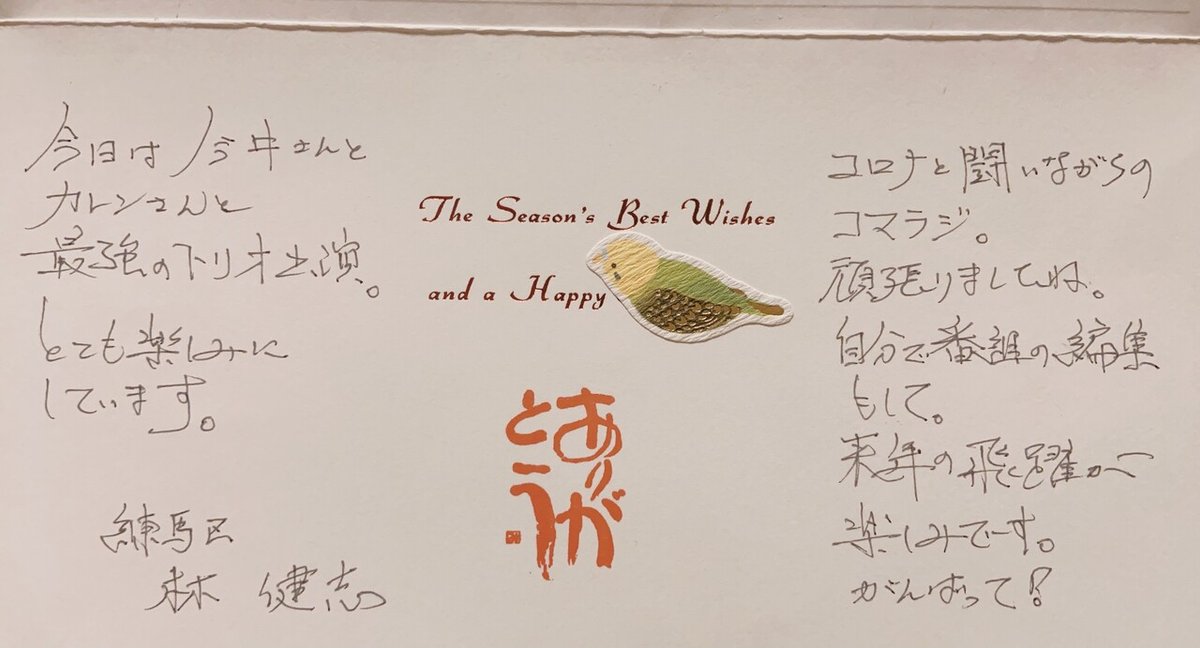 今日は今井さんと
カレンさんと
最強のトリオ出演。
とても楽しみに
しています。
練馬区
林 健志
The Season's Best Wishes
and a Happy
ありが
とう
コロナと闘いながらの
コマラジ。
頑張りましたね。
自分で番組の編集
もして。
来年の飛躍が
楽しみです。
がんばって!